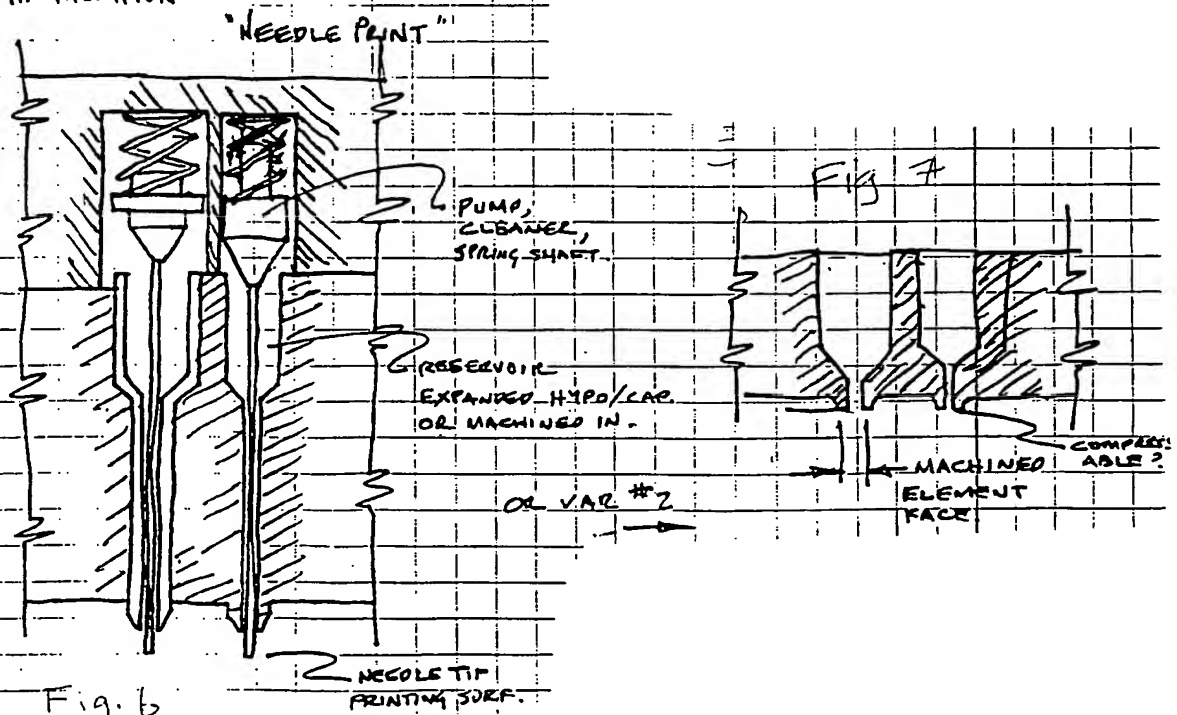 "NEEDLE PRINT"
PUMP,
CLEANER,
SPRING SHAFT.
RESERVOIR
EXPANDED HYPO/CAP
OR MACHINED IN.
OR VAR #2
NEEDLE TIP
PRINTING SURF.
Fig. 6
Fig 7
COMPRESS
ABLE?
MACHINED
ELEMENT
FACE